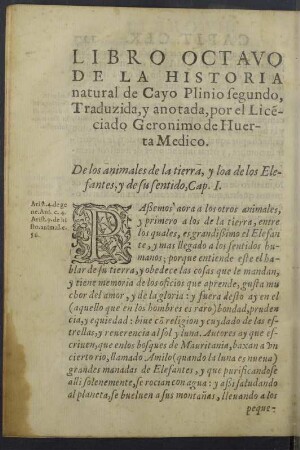 LIBRO OCTAVO
DE LA HISTORIA
natural de Cayo Plinio segundo,
Traduzida, y anotada, por el Licẽ-
ciado Geronimo de Huer-
ta Medico.
De los animales de la tierra, y loa de los Ele-
fantes, y de su sentido, Cap. I.
PAssemos aora a los otros animales,
y primero a los de la tierra, entre
los quales, es grandissimo el Elefan
te, y mas llegado a los sentidos hu-
manos; porque entiende este el ha-
blar de su tierra, y obedece las cosas que le mandan,
y tiene memoria de los oficios que aprende, gusta mu
cho del amor, y de la gloria: y fuera desto ay en el
(aquello que en los hombres es raro) bondad, pruden-
cia, y equidad: biue cõ religion y cuydado de las es-
trellas, y reuerencia al sol y luna. Autores ay que es-
criuen, que en los bosques de Mauritania, baxan a vn
cierto rio, llamado Amilo (quando la luna es nueua)
grandes manadas de Elefantes, y que purificandose
alli solenemente, se rocian con agua: y assi saludando
al planeta, se bueluen a sus montañas, lleuando a los
peque-